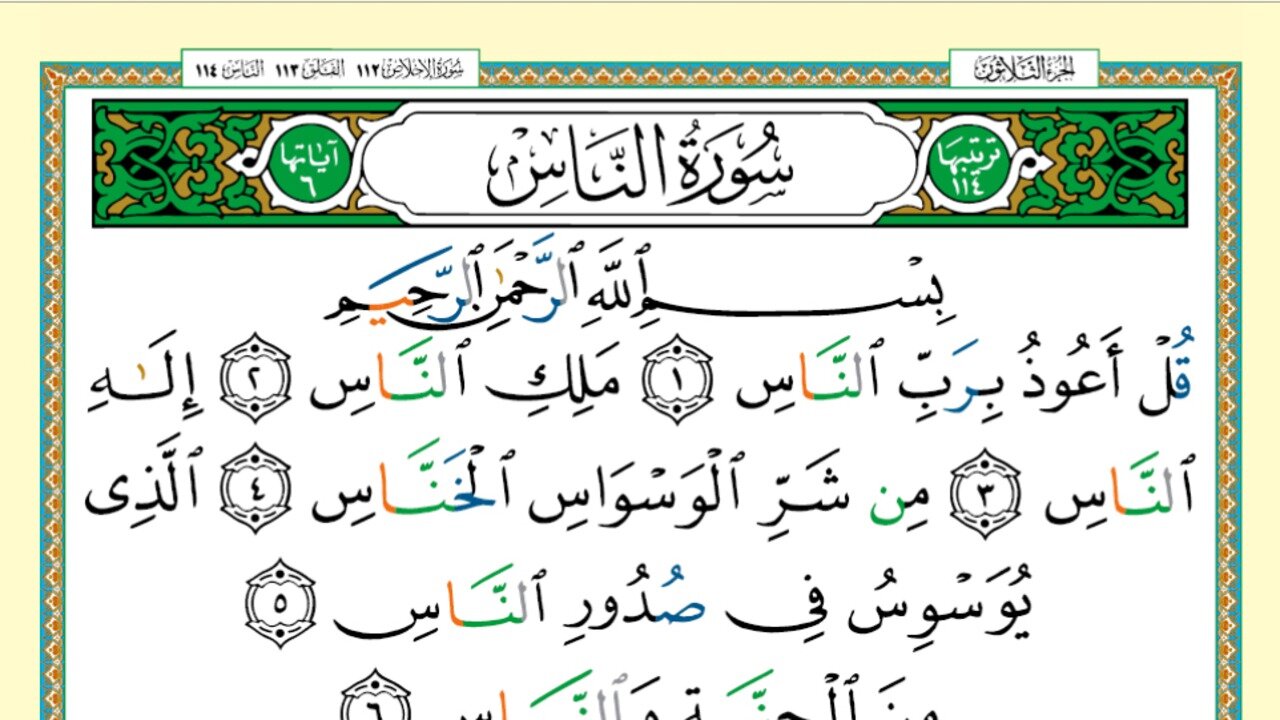 الجزء الثلاثون
سورة الإخلاص ١١٢ الفلق ١١٣ الناس ١١٤
ترتيبها ١١٤
سُورَةُ النَّاسِ
آياتها ٦
بِسْمِ ٱللَّهِ ٱلرَّحْمَٰنِ ٱلرَّحِيمِ
قُلْ أَعُوذُ بِرَبِّ ٱلنَّاسِ ١ مَلِكِ ٱلنَّاسِ ٢ إِلَٰهِ
ٱلنَّاسِ ٣ مِن شَرِّ ٱلْوَسْوَاسِ ٱلْخَنَّاسِ ٤ ٱلَّذِى
يُوَسْوِسُ فِى صُدُورِ ٱلنَّاسِ ٥
مِنَ ٱلْجِنَّةِ وَٱلنَّاسِ ٦